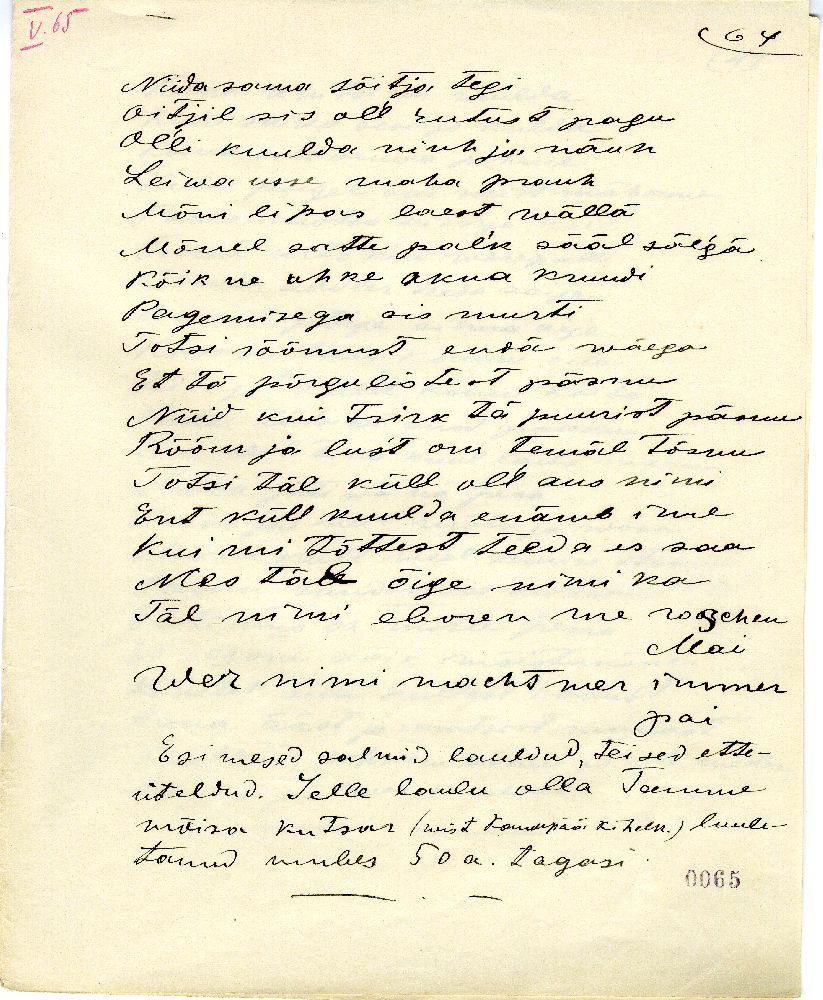 V. 65
64
Niida sama sõitja tegi
Oitjil sis oll' rutust pagu
Olli kuulda niuh ja näuh
Leiwa usse maha prauh
Mõni lipas laest wällä
Mõnel satte palk sääl sälgä
Kõik ne uhke akna kruudi
Pagemisega sis murti
Totsi rõõmust endä wäega
Et tä põrgulistest päsnu
Nüüd kui Tsirk tä puurist päsnu
Rõõm ja lust om temäl tõsnu
Totsi täl küll oll' aus nimi
Ent küll kuulda enämb ime
Kui mi tõttest teeda es saa
Mes täl õige nimi ka
Täl nimi eboren me rooschen
Mai
Wer nimi macht mer immer
pai
Esimesed salmid lauldud, teised ette-
üteldud. Selle laulu olla Taemme
mõisa kutsar (wist kihelk.) luule-
tanud umbes 50 a. tagasi.
0065